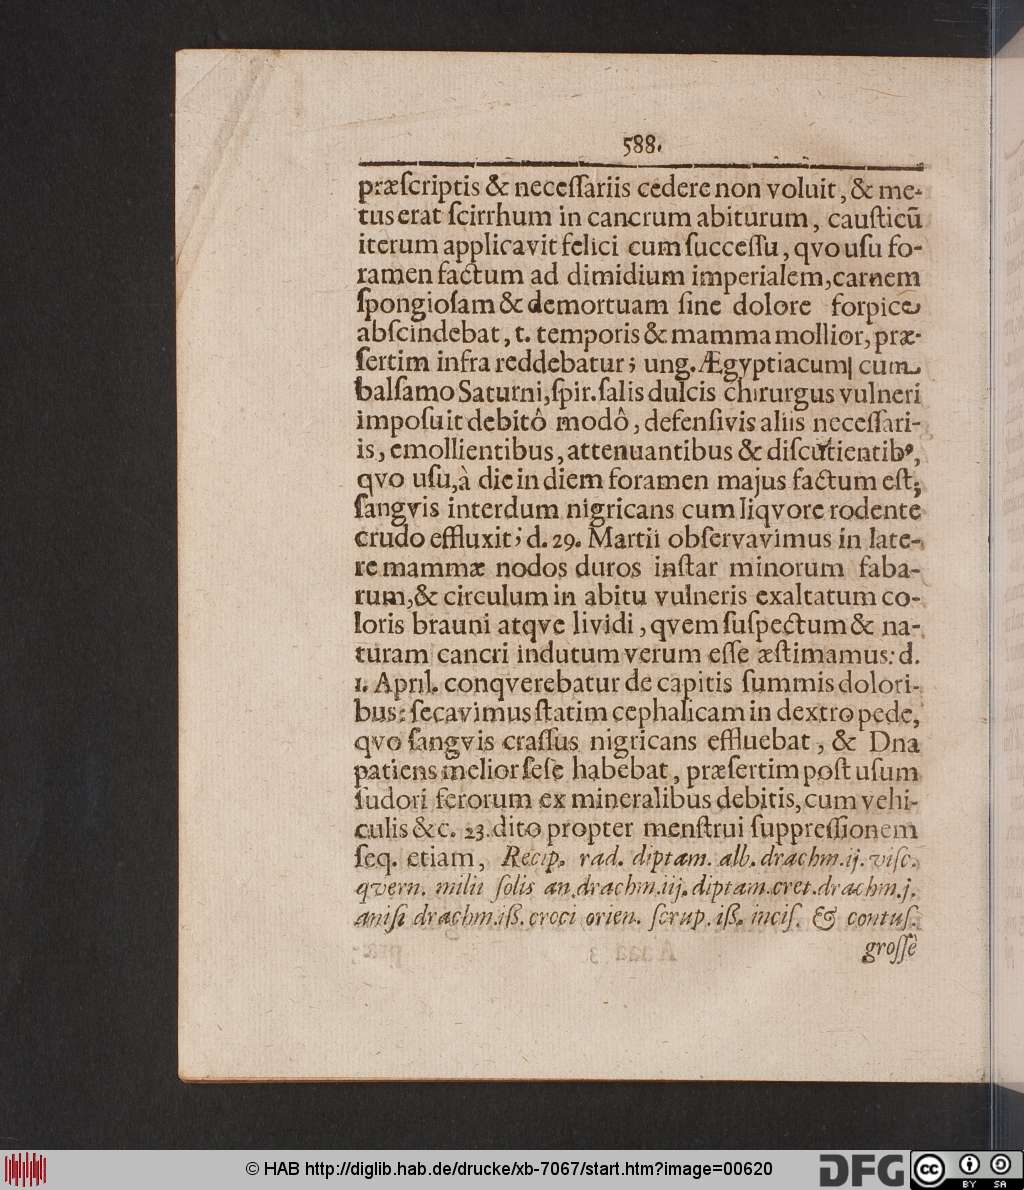 588.
præſcriptis & neceſſariis cedere non voluit, & me-
tus erat ſcirrhum in cancrum abiturum, cauſticū
iterum applicavit felici cum ſucceſſu, qvo uſu fo-
ramen factum ad dimidium imperialem, carnem
ſpongioſam & demortuam ſine dolore forpice
abſcindebat, t. temporis & mamma mollior, præ-
ſertim infra reddebatur; ung. Ægyptiacum cum
balſamo Saturni, ſpir. ſalis dulcis chirurgus vulneri
impoſuit debitô modô, defenſivis aliis neceſſari-
is, emollientibus, attenuantibus & diſcutientibꝰ,
qvo uſu, à die in diem foramen majus factum eſt;
ſangvis interdum nigricans cum liqvore rodente
crudo effluxit; d. 29. Martii obſervavimus in late-
re mammæ nodos duros inſtar minorum faba-
rum, & circulum in abitu vulneris exaltatum co-
loris brauni atqve lividi, qvem ſuſpectum & na-
turam cancri indutum verum eſſe æſtimamus: d.
1. April. conqverebatur de capitis ſummis dolori-
bus: ſecavimus ſtatim cephalicam in dextro pede,
qvo ſangvis craſſus nigricans effluebat, & Dna
patiens melior ſeſe habebat, præſertim poſt uſum
ſudori ferorum ex mineralibus debitis, cum vehi-
culis &c. 23. dito propter menſtrui ſuppreſſionem
ſeq. etiam, Recip. rad. diptam. alb. drachm. ij. viſc.
qvern. milii ſolis an. drachm. iij. diptam. cret. drachm. j.
aniſi drachm. iß. croci orien. ſcrup. iß. inciſ. & contuſ.
groſſè
© HAB http://diglib.hab.de/drucke/xb-7067/start.htm?image=00620
DFG
cc
BY SA